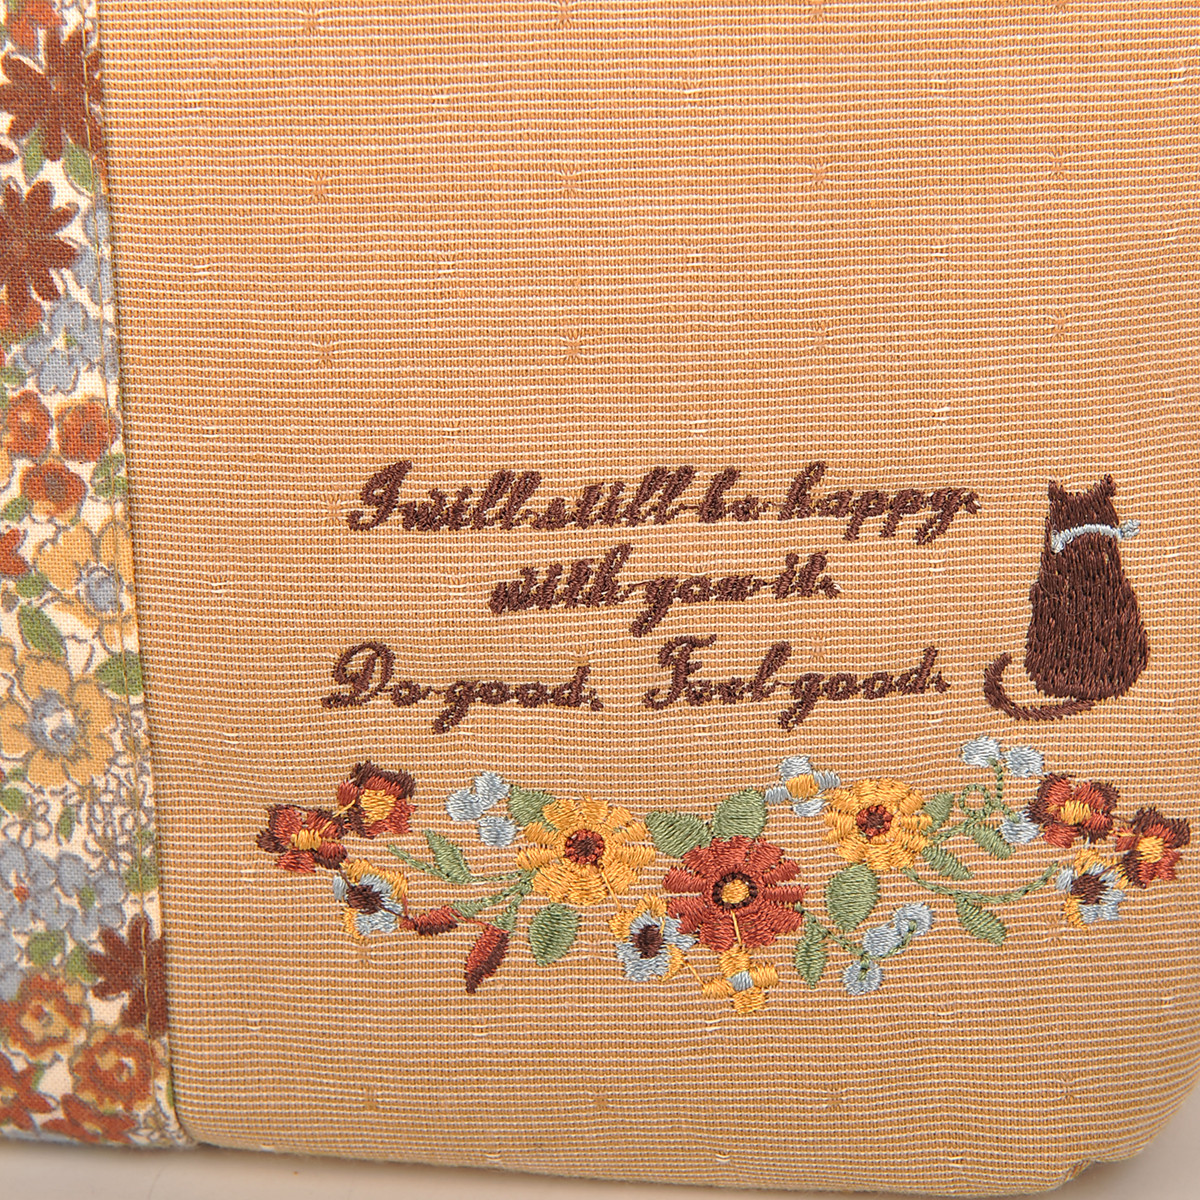 I will still be happy.
with you it.
Do good. Feel good.